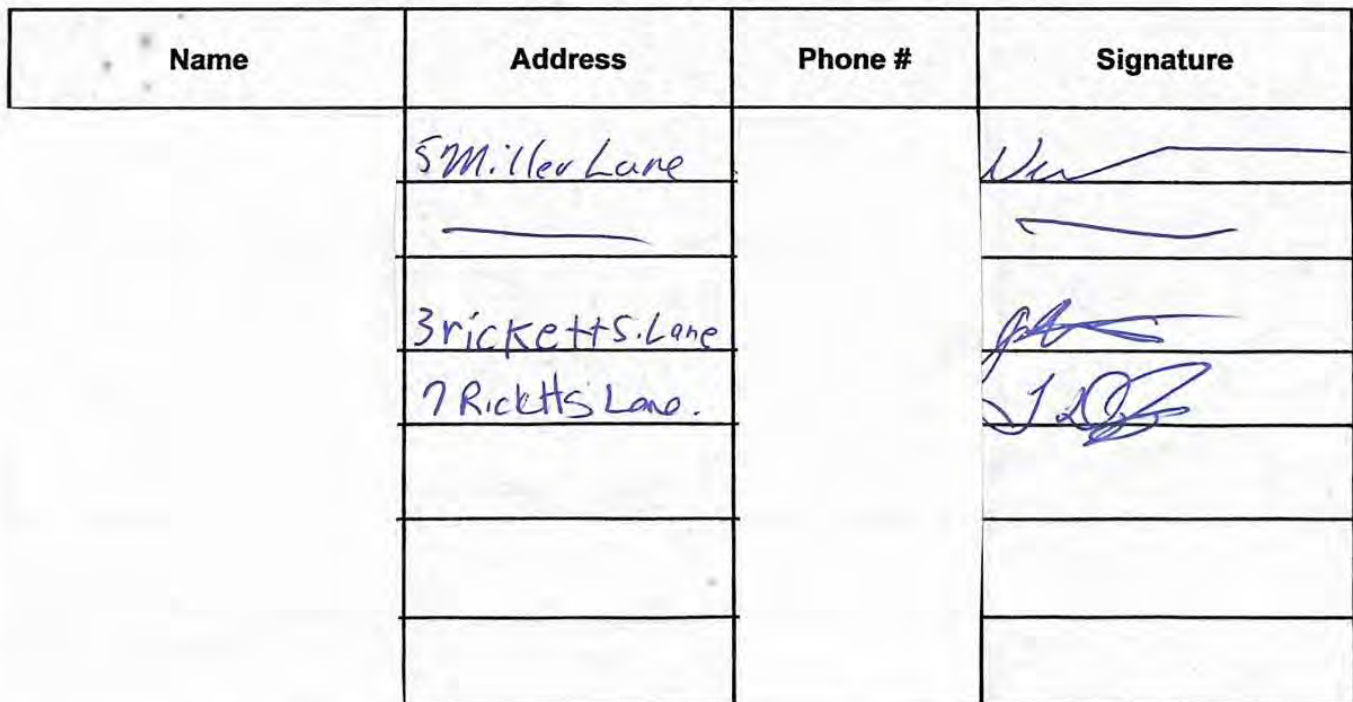 Name Address Phone # Signature
5 Miller Lane
3 ricketts. Lane
7 Ricktts Lane.